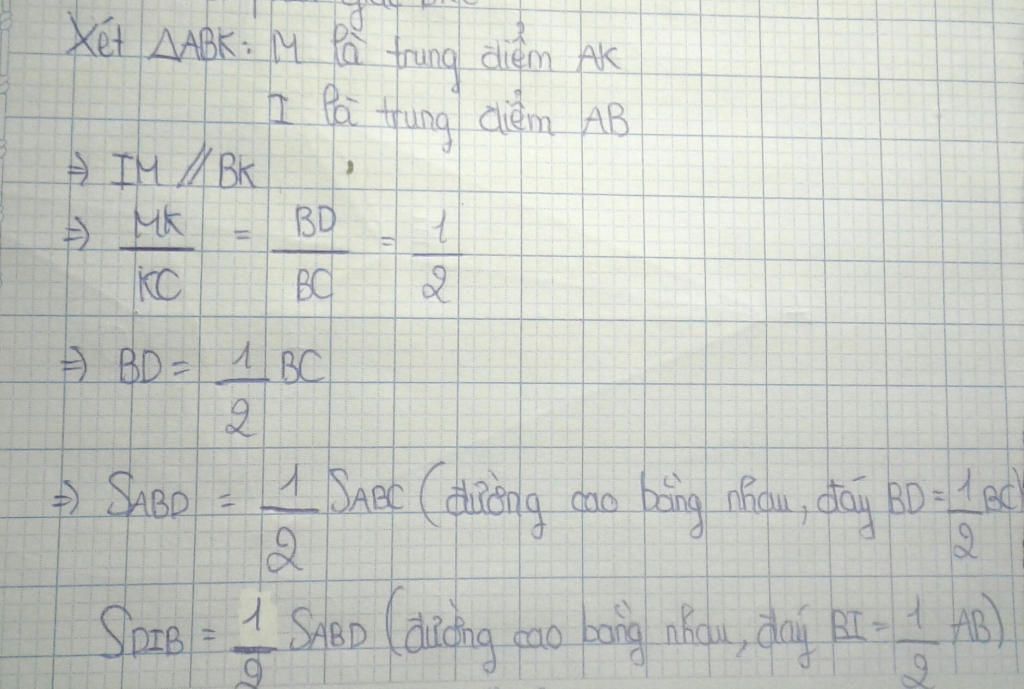 Xét ΔABK: M là trung điểm AK
I là trung điểm AB
⇒ IM // BK
⇒ MK/KC = BD/BC = 1/2
⇒ BD = 1/2 BC
⇒ SABD = 1/2 SABC (đường cao bằng nhau, đáy BD = 1/2 BC)
SDIB = 1/2 SABD (đường cao bằng nhau, đáy BI = 1/2 AB)